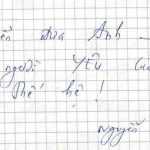 đưa Anh —
người YÊU
Thế hệ !
Nguyễn